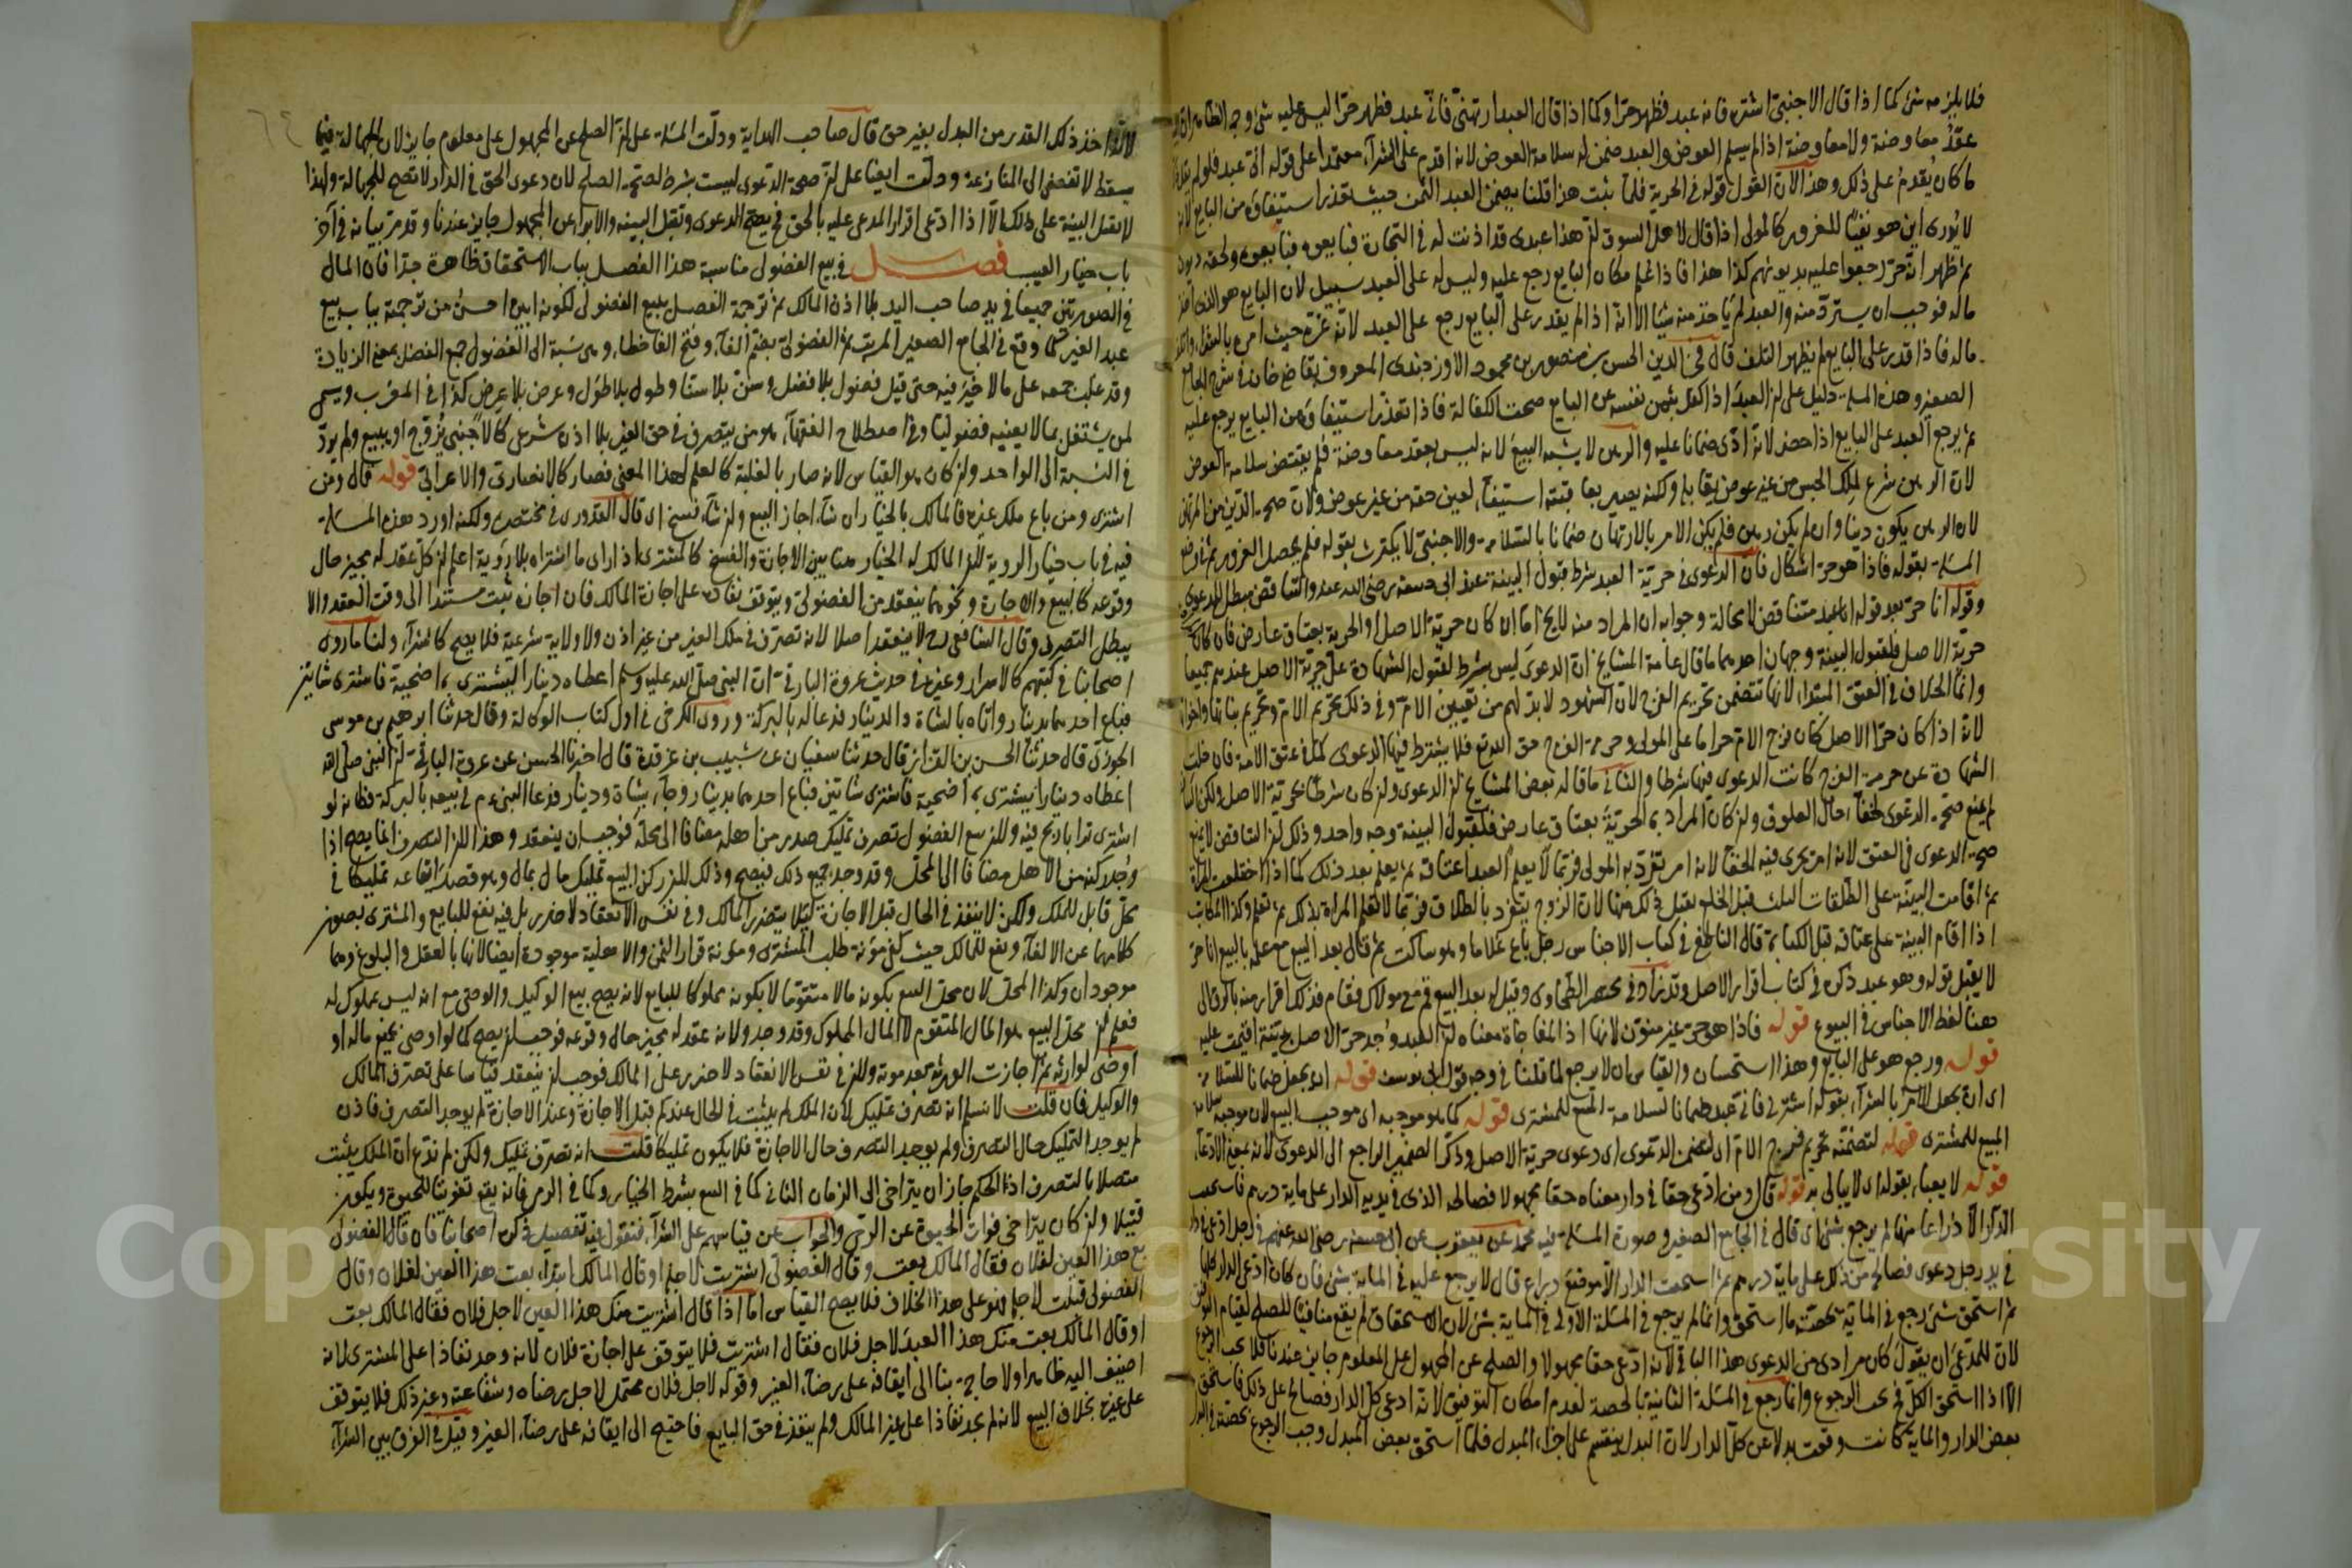 فلا يلزمه شئ كما اذا قال الاجنبى اشتره فانه عبد فظهر حرا وكما اذا قال العبد ارتهنى فانى عبد فظهر حرا ليس عليه شئ وجه الظاهر ان
عقد معاوضة ولا معاوضة اذا لم يسلم العوض والعبد ضمن له سلامة العوض لانه اقدم على الشراء معتمدا على قوله انى عبد فلو لم يقل
ما كان يقدم على ذلك وهذا لان القول قوله فى الحرية فلما ثبت هذا قلنا يضمن العبد الثمن حيث تعذر استيفاؤه من البايع لانه
لا يدرى اين هو نفيا للغرور كالمولى اذا قال لاهل السوق ان هذا عبدى قد اذنت له فى التجارة فبايعوه فبايعوه ولحقه ديون
ثم ظهر انه حر رجعوا عليه بديونهم كذا هذا فاذا علم مكان البايع رجع عليه وليس له على العبد سبيل لان البايع هو الذى اخذ
ماله فوجب ان يسترد منه والعبد لم ياخذ منه شيا الا انه اذا لم يقدر على البايع رجع على العبد لانه غره حيث امره بالعقد
ماله فاذا قدر على البايع لم يظهر التلف قال فخر الدين الحسن بن منصور بن محمود الاوزجندى المعروف بقاضى خان فى شرح الجامع
الصغير وهذه المسلة دليل على ان العبد اذا كفل بثمن نفسه عن البايع صحت الكفالة فاذا تعذر استيفاؤه من البايع يرجع عليه
ثم يرجع العبد على البايع اذا حضر لانه ادى ضمانا عليه والرهن لا يشبه البيع لانه ليس بعقد معاوضة فلم يقتض سلامة العوض
لان الرهن شرع لملك الحبس من غير عوض يقابله ولكنه يصير بعاقبته استيفاء لعين حقه من غير عوض ولان صحة الدين من
لان الرهن يكون دينا وان لم يكن رهن فلم يكن الامر بالارتهان ضمانا بالسلامة والاجنبى لا يكترث بقوله فلم يحصل الغرور ثم فى وضع
المسلة بقوله فاذا هو حر اشكال فان الدعوى فى حرية العبد شرط قبول البينة عند ابى حنيفة رضى الله عنه والتناقض مبطل للدعوى
وقوله انا حر بعد قوله انا عبد متناقض لا محالة وجوابه ان المراد منه لا يخ اما ان كان حرية الاصل او الحرية بعتاق عارض فان كان
حرية الاصل فلقبول البينة وجهان احدهما ما قال عامة المشايخ ان الدعوى ليس بشرط لقبول الشهادة على حرية الاصل عندهم جميعا
وانما الخلاف فى العتق المبتدا لانها تتضمن تحريم الفرج لان الشهود لا بد لهم من تعيين الام وفى ذلك تحريم الام وتحريم بناتها واخواتها
لانه اذا كان حر الاصل كان فرج الام حراما على المولى وحرمة الفرج حق الله تع فلا يشترط فيها الدعوى كما فى عتق الامة فان خلت
الشهادة عن حرمة الفرج كانت الدعوى فيها شرطا والثانى ما قاله بعض المشايخ ان الدعوى وان كان شرطا فى حرية الاصل ولكن التناقض
لم يمنع صحة الدعوى لخفاء حال العلوق وان كان المراد به الحرية بعتاق عارض فلقبول البينة وجه واحد وذلك ان التناقض لا يمنع
صحة الدعوى فى العتق لانه امر يجرى فيه الخفاء لانه امر تفرد به المولى فربما لا يعلم العبد اعتاقه ثم يعلم بعد ذلك كما اذا اختلعت المراة
ثم اقامت البينة على الطلقات الثلث قبل الخلع يقبل ذلك منها لان الزوج يتفرد بالطلاق فربما لا تعلم المراة بذلك ثم تعلم وكذا المكاتب
اذا اقام البينة على عتاقه قبل الكتابة قال الناطفى فى كتاب الاجناس رجل باع غلاما وهو ساكت ثم قال بعد البيع مع علمه بالبيع انا حر
لا يقبل قوله وهو عبد ذكره فى كتاب اقرار الاصل وقد زاد فى مختصر الطحاوى وقيل له بعد البيع قم مع مولاك فقام فذلك اقرار منه بالرق الى
هنا لفظ الاجناس فى البيوع قوله فاذا هو حر غير منون لانها اذا المفاجاة معناه ان العبد وجد حر الاصل ببينة اقيمت عليه
قوله ورجع هو على البايع وهذا استحسان والقياس ان لا يرجع لما قلنا فى وجه قول ابى يوسف قوله اى يجعل ضمانا للسلامة
اى انه يجعل الامر بالشراء بقوله اشترنى فانى عبد ضمانا لسلامة المبيع للمشترى قوله كما هو موجبه اى موجب البيع لان موجبه سلامة
المبيع للمشترى قوله لتضمنه تحريم فرج الام اى لتضمن الدعوى اى دعوى حرية الاصل وذكر الضمير الراجع الى الدعوى لانه بمعنى الادعاء
قوله لا يعباء بقوله اى لا يبالى به قوله قال ومن ادعى حقا فى دار معناه حقا مجهولا فصالحه الذى فى يديه الدار على ماية درهم فاستحقت
الدار الا ذراعا منها لم يرجع بشئ اى قال فى الجامع الصغير وصورة المسلة فيه محمد عن يعقوب عن ابى حنيفة رضى الله عنهم فى رجل ادعى فى دار
فى يد رجل دعوى فصالحه من ذلك على ماية درهم ثم استحقت الدار الا موضع ذراع قال لا يرجع عليه فى الماية بشئ فان كان ادعى الدار كلها
ثم استحق شئ رجع فى الماية بحصته ما استحق وانما لم يرجع فى المسئلة الاولى فى الماية بشئ لان الاستحقاق لم يقع منافيا للصلح لقيام التوفيق
لان للمدعى ان يقول كان مرادى من الدعوى هذا الباقى لانه ادعى حقا مجهولا والصلح عن المجهول على المعلوم جايز عندنا فلا يجب الرجوع
الا اذا استحق الكل فح يجب الرجوع وانما رجع فى المسئلة الثانية بالحصة لعدم امكان التوفيق لانه ادعى كل الدار فصالحه على ذلك فاستحق
بعض الدار والماية كانت وقعت بدلا عن كل الدار لان البدل ينقسم على اجزاء المبدل فلما استحق بعض المبدل وجب الرجوع بحصته فى البدل
لانه اخذ ذلك القدر من البدل بغير حق قال صاحب الهداية ودلت المسئلة على ان الصلح عن المجهول على معلوم جايز لان الجهالة فيما
يسقط لا تفضى الى المنازعة ودلت ايضا على ان صحة الدعوى ليست بشرط لصحة الصلح لان دعوى الحق فى الدار لا تصح للجهالة ولهذا
لا تقبل البينة على ذلك الا اذا ادعى اقرار المدعى عليه بالحق فح يصح الدعوى وتقبل البينة والابراء عن المجهول جايز عندنا وقد مر بيانه فى آخر
باب خيار العيب فصل فى بيع الفضولى مناسبة هذا الفصل بباب الاستحقاق ظاهرة جدا فان المال
فى الصورتين جميعا فى يد صاحب اليد بلا اذن المالك ثم ترجمة الفصل ببيع الفضولى لكونه ابين احسن من ترجمة بباب بيع
عبد الغير كما وقع فى الجامع الصغير المرتب ثم الفضولى بضم الفاء وفتح الفاء خطاء وهى نسبة الى الفضول جمع الفضل بمعنى الزيادة
وقد غلب جمعه على ما لا خير فيه حتى قيل فضول بلا فضل وسن بلا سنا وطول بلا طول وعرض بلا عرض كذا فى المغرب ويسمى
لمن يشتغل بما لا يعنيه فضوليا وفى اصطلاح الفقهاء هو من يتصرف فى حق الغير بلا اذن شرعى كالاجنبى يزوج او يبيع ولم يرد
فى النسبة الى الواحد وان كان هو القياس لانه صار بالغلبة كالعلم لهذا المعنى فصار كالانصارى والاعرابى قوله قال ومن
اشترى ومن باع ملك غيره فالمالك بالخيار ان شاء اجاز البيع وان شاء فسخ اى قال القدورى فى مختصره ولكنه اورد هذه المسلة
فيه فى باب خيار الروية لان المالك له الخيار هنا بين الاجازة والفسخ كالمشترى اذا راى ما اشتراه بلا روية اعلم ان كل عقد له مجيز حال
وقوعه كالبيع والاجارة ونحوهما ينعقد من الفضولى ويتوقف نفاذه على اجازة المالك فان اجازه ثبت مستندا الى وقت العقد والا
يبطل التصرف وقال الشافعى رح لا ينعقد اصلا لانه تصرف فى ملك الغير من غير اذن ولا ولاية شرعية فلا يصح كالشراء ولنا ما روى
اصحابنا فى كتبهم كالاسرار وغيره فى حديث عروة البارقى ان النبى صلى الله عليه وسلم اعطاه دينارا ليشترى به اضحية فاشترى شاتين
فباع احدهما بدينار واتاه بالشاة والدينار فدعا له بالبركة وروى الكرخى فى اول كتاب الوكالة وقال حدثنا ابرهيم بن موسى
الجوذى قال حدثنا الحسن بن القزاز قال حدثنا سفيان عن شبيب بن غرقدة قال اخبرنا الحسن عن عروة البارقى ان النبى صلى الله
اعطاه دينارا يشترى به اضحية فاشترى شاتين فباع احدهما بدينار وجاء بشاة ودينار فدعا النبى عم فى بيعه بالبركة فكان لو
اشترى ترابا ربح فيه ولان بيع الفضولى تصرف تمليك صدر من اهله مضافا الى محله فوجب ان ينعقد وهذا لان التصرف انما يصح اذا
وجد ركنه من الاهل مضافا الى المحل وقد وجد جميع ذلك فيصح وذلك لان ركن البيع تمليك مال بمال وهو قصد ايقاعه تمليكا فى
محل قابل للملك ولكن لا ينفذ فى الحال قبل الاجازة لئلا يتضرر المالك وفى نفس الانعقاد لا ضرر بل فيه نفع للبايع والمشترى بصون
كلامهما عن الالغاء ونفع للمالك حيث كفى مؤنة طلب المشترى ومؤنة قرار الثمن والاهلية موجودة ايضا لانها بالعقل والبلوغ وهما
موجودان وكذا المحل لان محل البيع بكونه مالا متقوما لا بكونه مملوكا للبايع لانه يصح بيع الوكيل والوصى مع انه ليس بمملوك له
فعلم ان محل البيع هو المال المتقوم لا المال المملوك وقد وجد ولانه عقد له مجيز حال وقوعه فوجب ان يصح كما لو اوصى بجميع ماله او
اوصى لوارثه ثم اجازت الورثة بعد موته ولان فى نفس الانعقاد لا ضرر على المالك فوجب ان ينعقد قياسا على تصرف المالك
والوكيل فان قلت لا نسلم انه تصرف تمليك لان الملك لم يثبت فى الحال عندكم قبل الاجازة وعند الاجازة لم يوجد التصرف فاذن
لم يوجد التمليك حال التصرف ولم يوجد التصرف حال الاجازة فلا يكون تمليكا قلت انه تصرف تمليك ولكن لم ندع ان الملك يثبت
متصلا بالتصرف اذ الحكم جاز ان يتراخى الى الزمان الثانى كما فى البيع بشرط الخيار وكما فى الرمى فانه يقع تفويتا للحيوة ويكون
قتيلا وان كان يتراخى فوات الحيوة عن الرمى والجواب عن قياسهم على الشراء فنقول فيه تفصيل ذكره اصحابنا فان قال الفضولى
بع هذا العين لفلان فقال المالك بعت وقال الفضولى اشتريت لاجله او قال المالك ابتداء بعت هذا العين لفلان وقال
الفضولى قبلت لاجله فهو على هذا الخلاف فلا يصح القياس اما اذا قال اشتريت منك هذا العين لاجل فلان فقال المالك بعت
او قال المالك بعت منك هذا العبد لاجل فلان فقال اشتريت فلا يتوقف على اجازة فلان لانه وجد نفاذا على المشترى لانه
اضيف اليه ظاهرا ولا حاجة بنا الى ايقافه على رضاء الغير وقوله لاجل فلان محتمل لاجل رضاه وشفاعته وغير ذلك فلا يتوقف
على غيره بخلاف البيع لانه لم يجد نفاذا على غير المالك ولم ينفذ فى حق البايع فاحتيج الى ايقافه على رضاء الغير وقيل فى الفرق بين الشراء